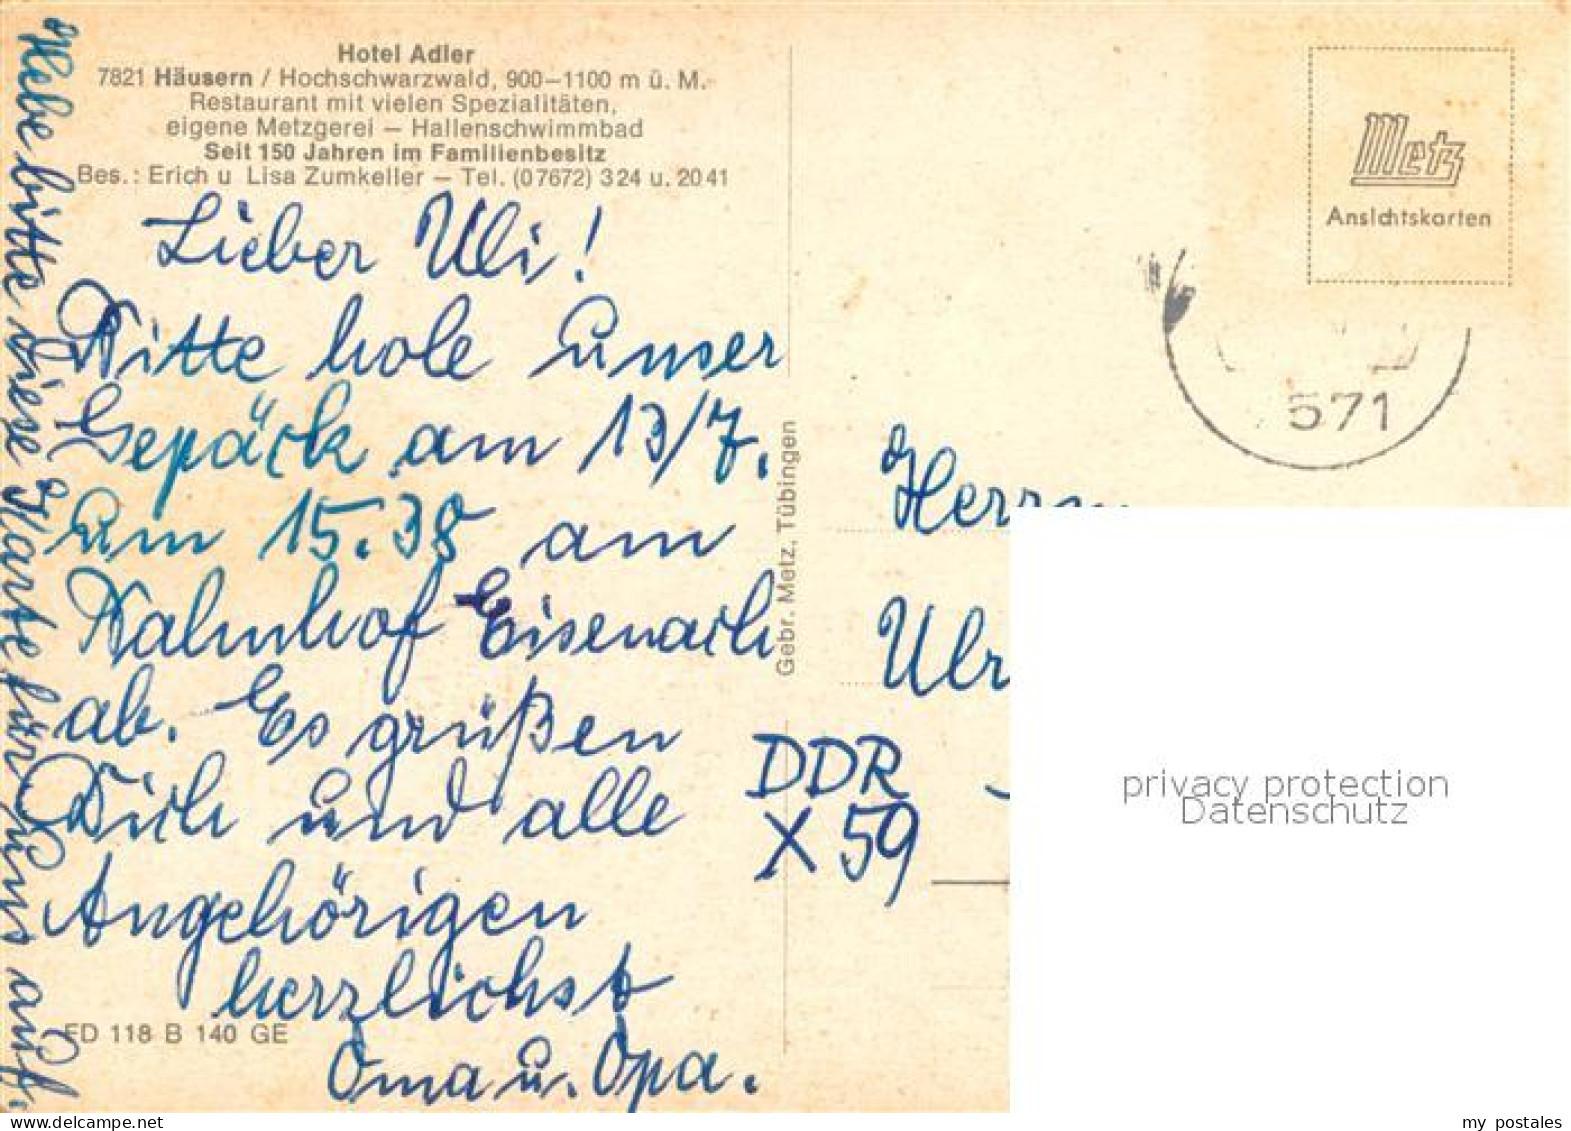 Hotel Adler
7821 Häusern / Hochschwarzwald, 900–1100 m ü. M.
Restaurant mit vielen Spezialitäten,
eigene Metzgerei – Hallenschwimmbad
Seit 150 Jahren im Familienbesitz
Bes.: Erich u Lisa Zumkeller – Tel. (07672) 324 u. 2041
Lieber Uli!
Bitte hole unser
Gepäck am 13/7.
um 15.38 am
Bahnhof Eisenach
ab. Es grüßen
Dich und alle
Angehörigen
herzlichst
Oma u. Opa.
Hebe bitte diese Karte für uns auf.
ED 118 B 140 GE
Gebr. Metz, Tübingen
Metz
Ansichtskarten
571
Herrn
Ulr
DDR
X 59
privacy protection
Datenschutz
my postales